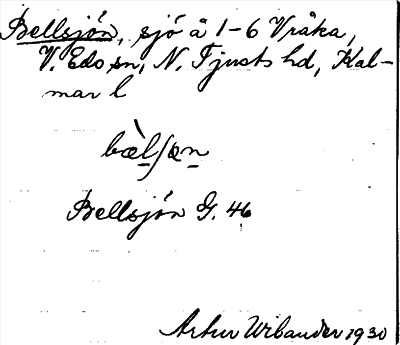 Bellsjön, sjö å 1-6 Vråka,
V. Eds sn, N. Tjusts hd, Kal-
mar l
bæ̀lʃøn
Bellsjön G. 46
Artur Urbander 1930